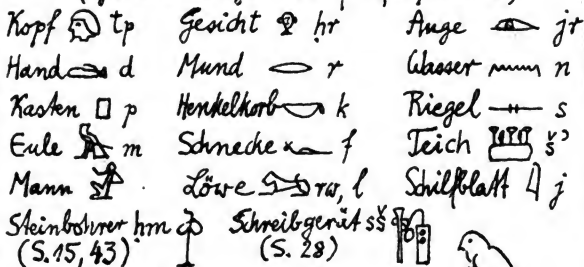 Kopf tp Gesicht hr Auge jr
Hand d Mund r Wasser n
Kasten p Henkelkorb k Riegel s
Eule m Schnecke f Teich š3
Mann Löwe rw, l Schilfblatt j
Steinbohrer hm Schreibgerät sš
(S. 15, 43) (S. 28)